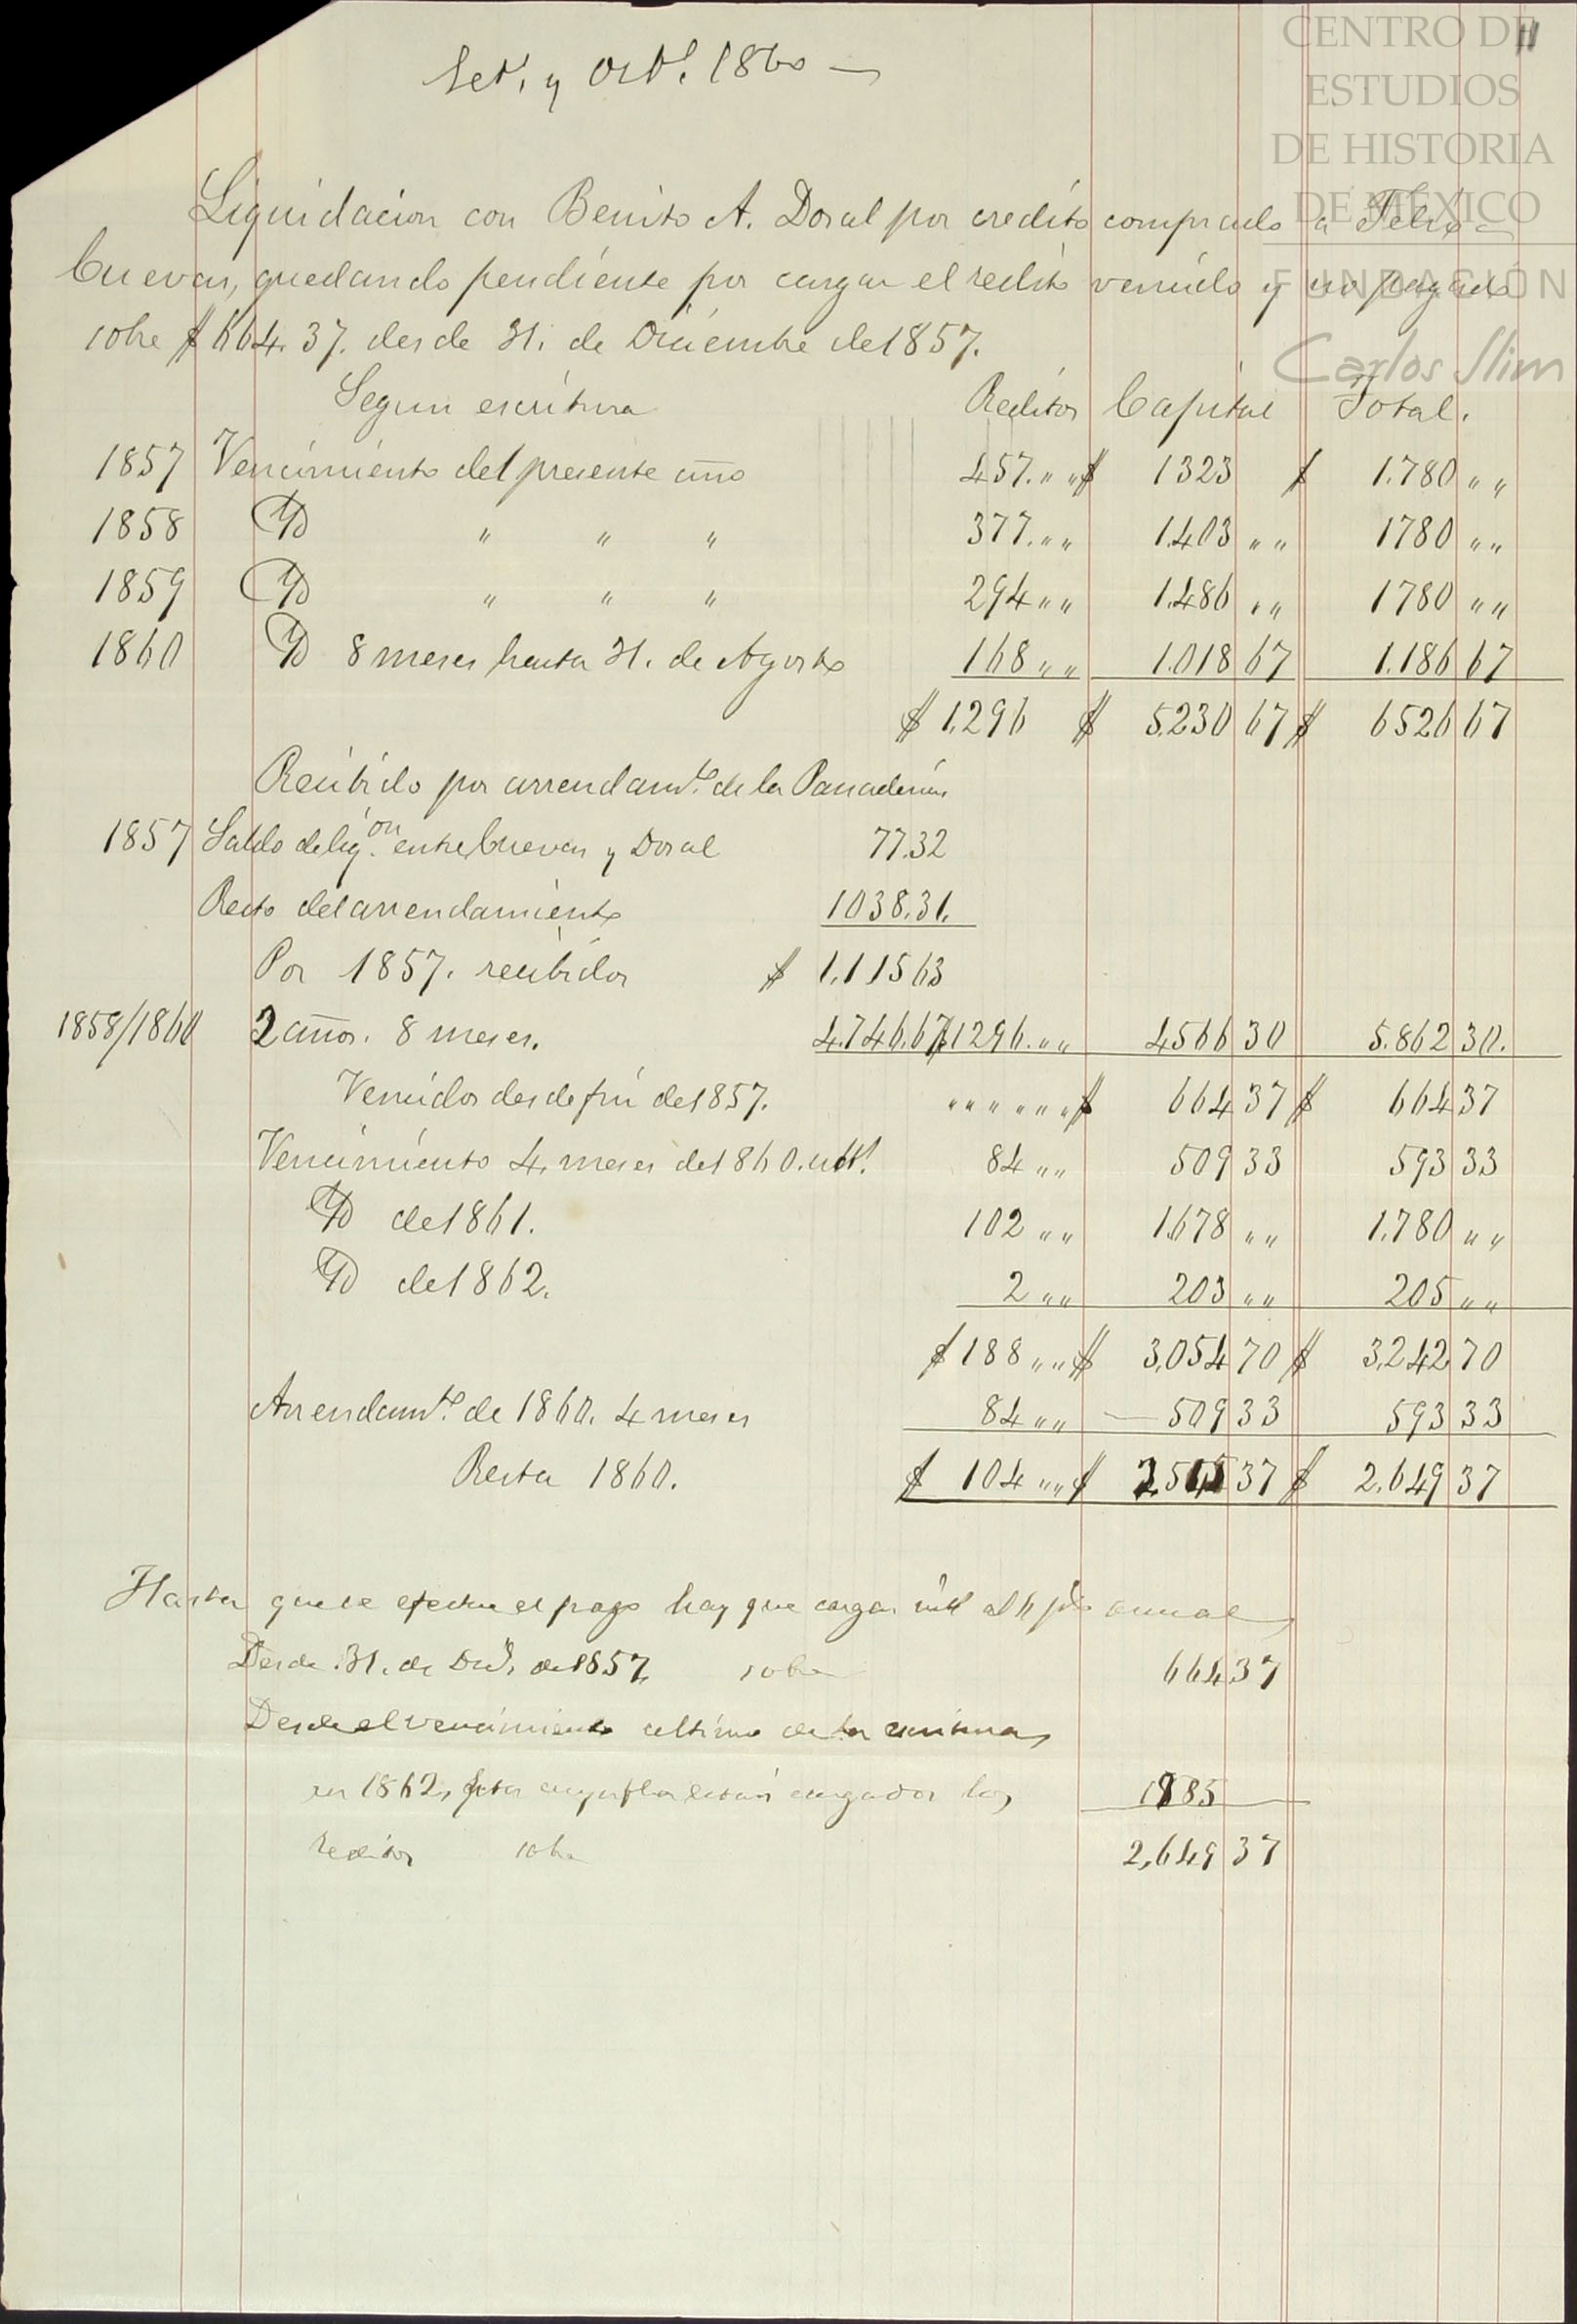 CENTRO DE
ESTUDIOS
DE HISTORIA
DE MÉXICO
FUNDACIÓN
Carlos Slim
Set. y Oct. 1860 —
Liquidacion con Benito A. Doral por credito comprado a Felix
Cuevas, quedando pendiente por cargar el redito vencido y no pagado
sobre $ 664. 37. desde 31. de Diciembre de 1857.
Segun escritura Reditos Capital Total.
1857 Vencimiento del presente año 457. „ „ $ 1323 $ 1.780 „ „
1858 Yd „ „ „ 377. „ „ 1.403 „ „ 1780 „ „
1859 Yd „ „ „ 294 „ „ 1.486 „ „ 1780 „ „
1860 Yd 8 meses hasta 31. de Agosto 168 „ „ 1.018 67 1.186 67
$ 1,296 $ 5.230 67 $ 6526 67
Recibido por arrendamto. de la Panaderia
1857 Saldo de liqon. entre Cuevas y Doral 77.32
Resto del arrendamiento 1038.31.
Por 1857. recibidos $ 1.115 63
1858/1860 2 años. 8 meses. 4.746.67 $ 1296. „ „ 4566 30 5.862 30.
Vencidos desde fin de 1857. „ „ „ „ „ „ $ 664 37 $ 664 37
Vencimiento 4 meses de 1860. 84 „ „ 509 33 593 33
Yd de 1861. 102 „ „ 1678 „ „ 1.780 „ „
Yd de 1862. 2 „ „ 203 „ „ 205 „ „
$ 188 „ „ $ 3,054 70 $ 3,242 70
Arrendamto. de 1860. 4 meses 84 „ „ — 509 33 593 33
Resta 1860. $ 104 „ „ $ 2,545 37 $ 2.649 37
Hasta que se efectue el pago hay que cargar al 6 p% anual
Desde 31. de Dic. de 1857, sobre 664 37
Desde el vencimiento ultimo de la escritura
en 1862, cargados los 1985
reditos sobre 2,649 37